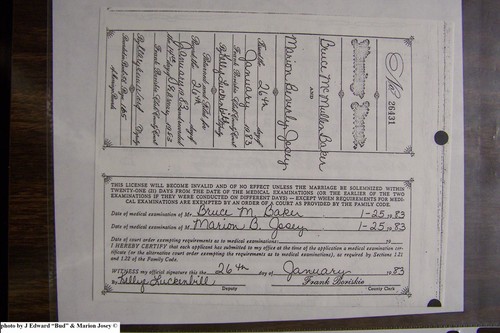 No 26431
Marriage License
Bruce McMullen Baker
AND
Marion Beverly Josey
Issued the 26th day of
January 1983
Frank Boriskie Clerk County Court
By Kelly Luckenbill Deputy
Returned and filed for
Record the 31st day of
January 1983 and recorded
Frank Boriskie Clerk County Court
Deputy
THIS LICENSE WILL BECOME INVALID AND OF NO EFFECT UNLESS THE MARRIAGE BE SOLEMNIZED WITHIN
TWENTY-ONE (21) DAYS FROM THE DATE OF THE MEDICAL EXAMINATIONS (OR THE EARLIER OF THE TWO
EXAMINATIONS IF THEY WERE CONDUCTED ON DIFFERENT DAYS) — EXCEPT WHEN REQUIREMENTS FOR MEDI-
CAL EXAMINATIONS ARE EXEMPTED BY AN ORDER OF A COURT AS PROVIDED BY THE FAMILY CODE.
Date of medical examination of Mr. Bruce M. Baker 1-25 1983
Date of medical examination of M Marion B. Josey 1-25 1983
Date of court order exempting requirements as to medical examinations: 19
I HEREBY CERTIFY that each applicant for said license submitted to my office at the time of the application a medical examination cer-
tificate (or the alternative court order exempting the requirements as to medical examinations), as required by Sections 1.21
and 1.22 of the Family Code.
WITNESS my official signature this the 26th day of January 1983
By Kelly Luckenbill Frank Boriskie
Deputy County Clerk
photo by J Edward "Bud" & Marion Josey ©